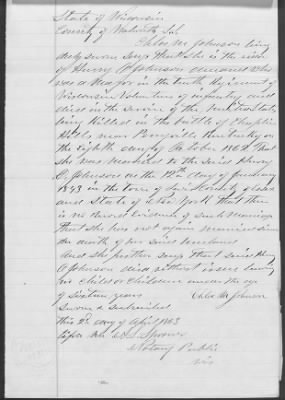 State of Wisconsin
County of Walworth Ss
Chloe M Johnson being
duly sworn says that she is the widow
of Henry P Johnson deceased who
was a Major in the tenth Regiment
Wisconsin Volunteers of infantry and
died in the service of the United States
being killed in the battle of Chaplin
Hills near Perryville Kentucky on
the eighth day of October 1862 That
she was married to the said Henry
P Johnson on the 12th day of January
1843 in the town of
and State of New York that there
is no record Evidence of such Marriage
That she has not again married since
the death of her said husband
And she further says that said H
P Johnson died without issue leaving
no Child or Children under the age
of sixteen years Chloe M Johnson
Sworn & subscribed
this 2d day of April 1863
before me Spooner
Notary Public
Wis